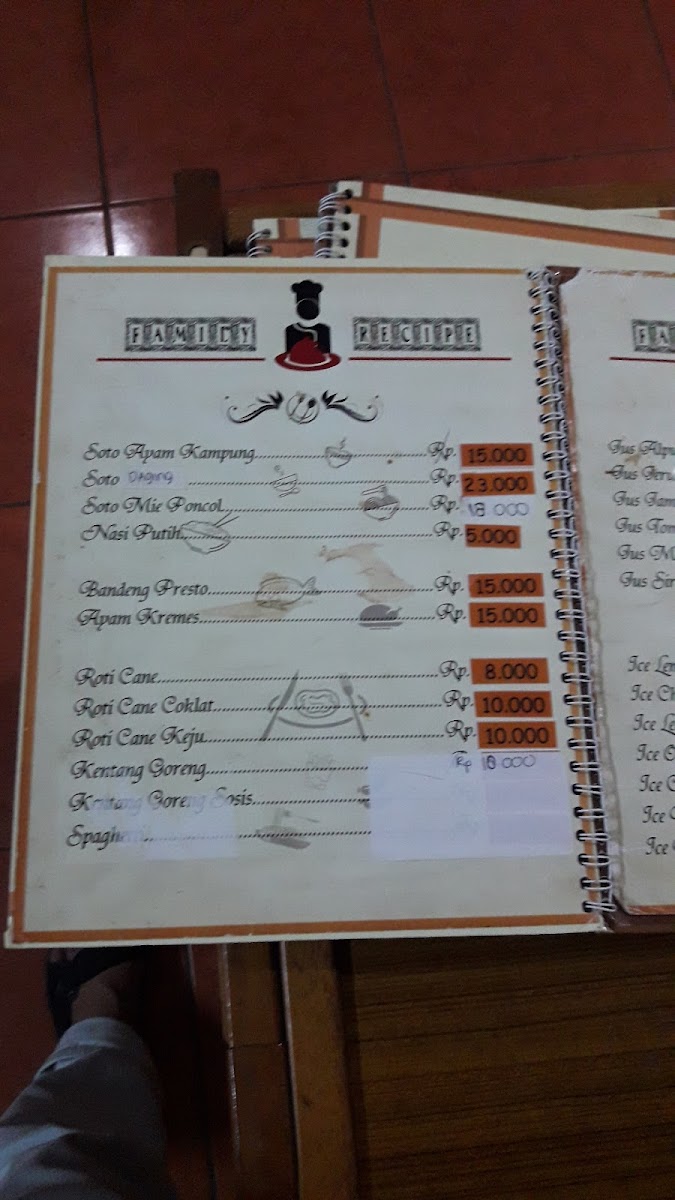 FAMILY RECIPE
Soto Ayam Kampung Rp. 15.000
Soto DAGING Rp. 23.000
Soto Mie Poncol Rp. 18 000
Nasi Putih Rp. 5.000
Bandeng Presto Rp. 15.000
Ayam Kremes Rp. 15.000
Roti Cane Rp. 8.000
Roti Cane Coklat Rp. 10.000
Roti Cane Keju Rp. 10.000
Kentang Goreng Rp 10 000
Kentang Goreng Sosis
Jus
Jus
Jus
Jus
Jus
Jus
Ice
Ice
Ice
Ice
Ice
Ice
Ice